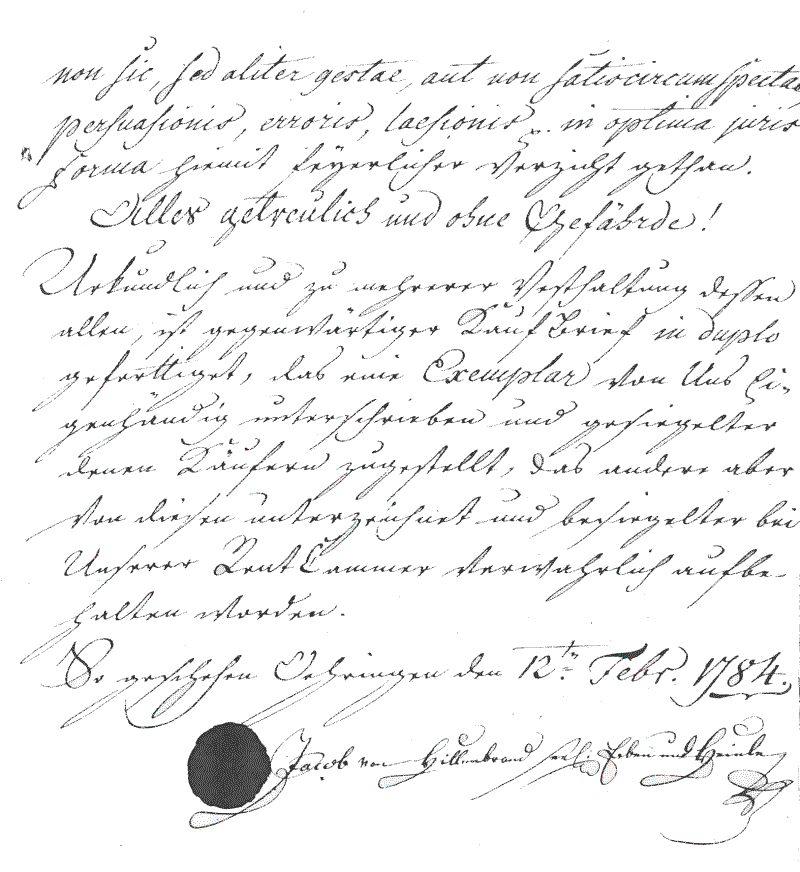 non sic, sed aliter gestae, aut non satis circumspectae
persuasionis, erroris, laesionis p. in optima juris
forma hiemit feyerlicher Verzicht gethan.
Alles getreulich und ohne Gefährde!
Urkundlich und zu mehrerer Vesthaltung dessen
allen, ist gegenwärtiger Kauf Brief in duplo
gefertiget, das eine Exemplar von Uns Ei-
genhändig unterschrieben und gesiegelter
denen Käufern zugestellt, das andere aber
von diesen unterzeichnet und besiegelter bei
Unserer Rent Cammer verwahrlich aufbe-
halten worden.
So geschehen Oehringen den 12tn Febr. 1784.
Jacob von Hillenbrand seel. Erben und